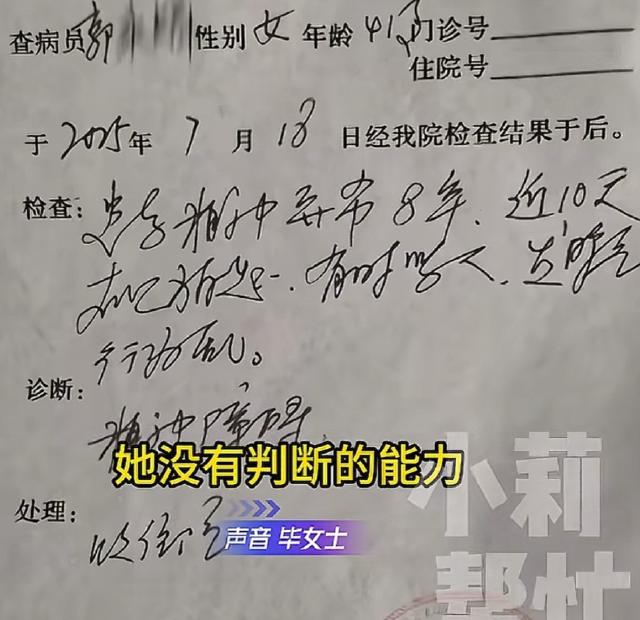 查病员郭 性别 女 年龄 41岁 门诊号
住院号
于 2025年 7 月 18 日经我院检查结果于后。
检查: 患者精神异常8年、近10天
有时骂人
行为乱。
诊断:
精神障碍
她没有判断的能力
处理:
收住院
声音 毕女士
小莉
帮忙